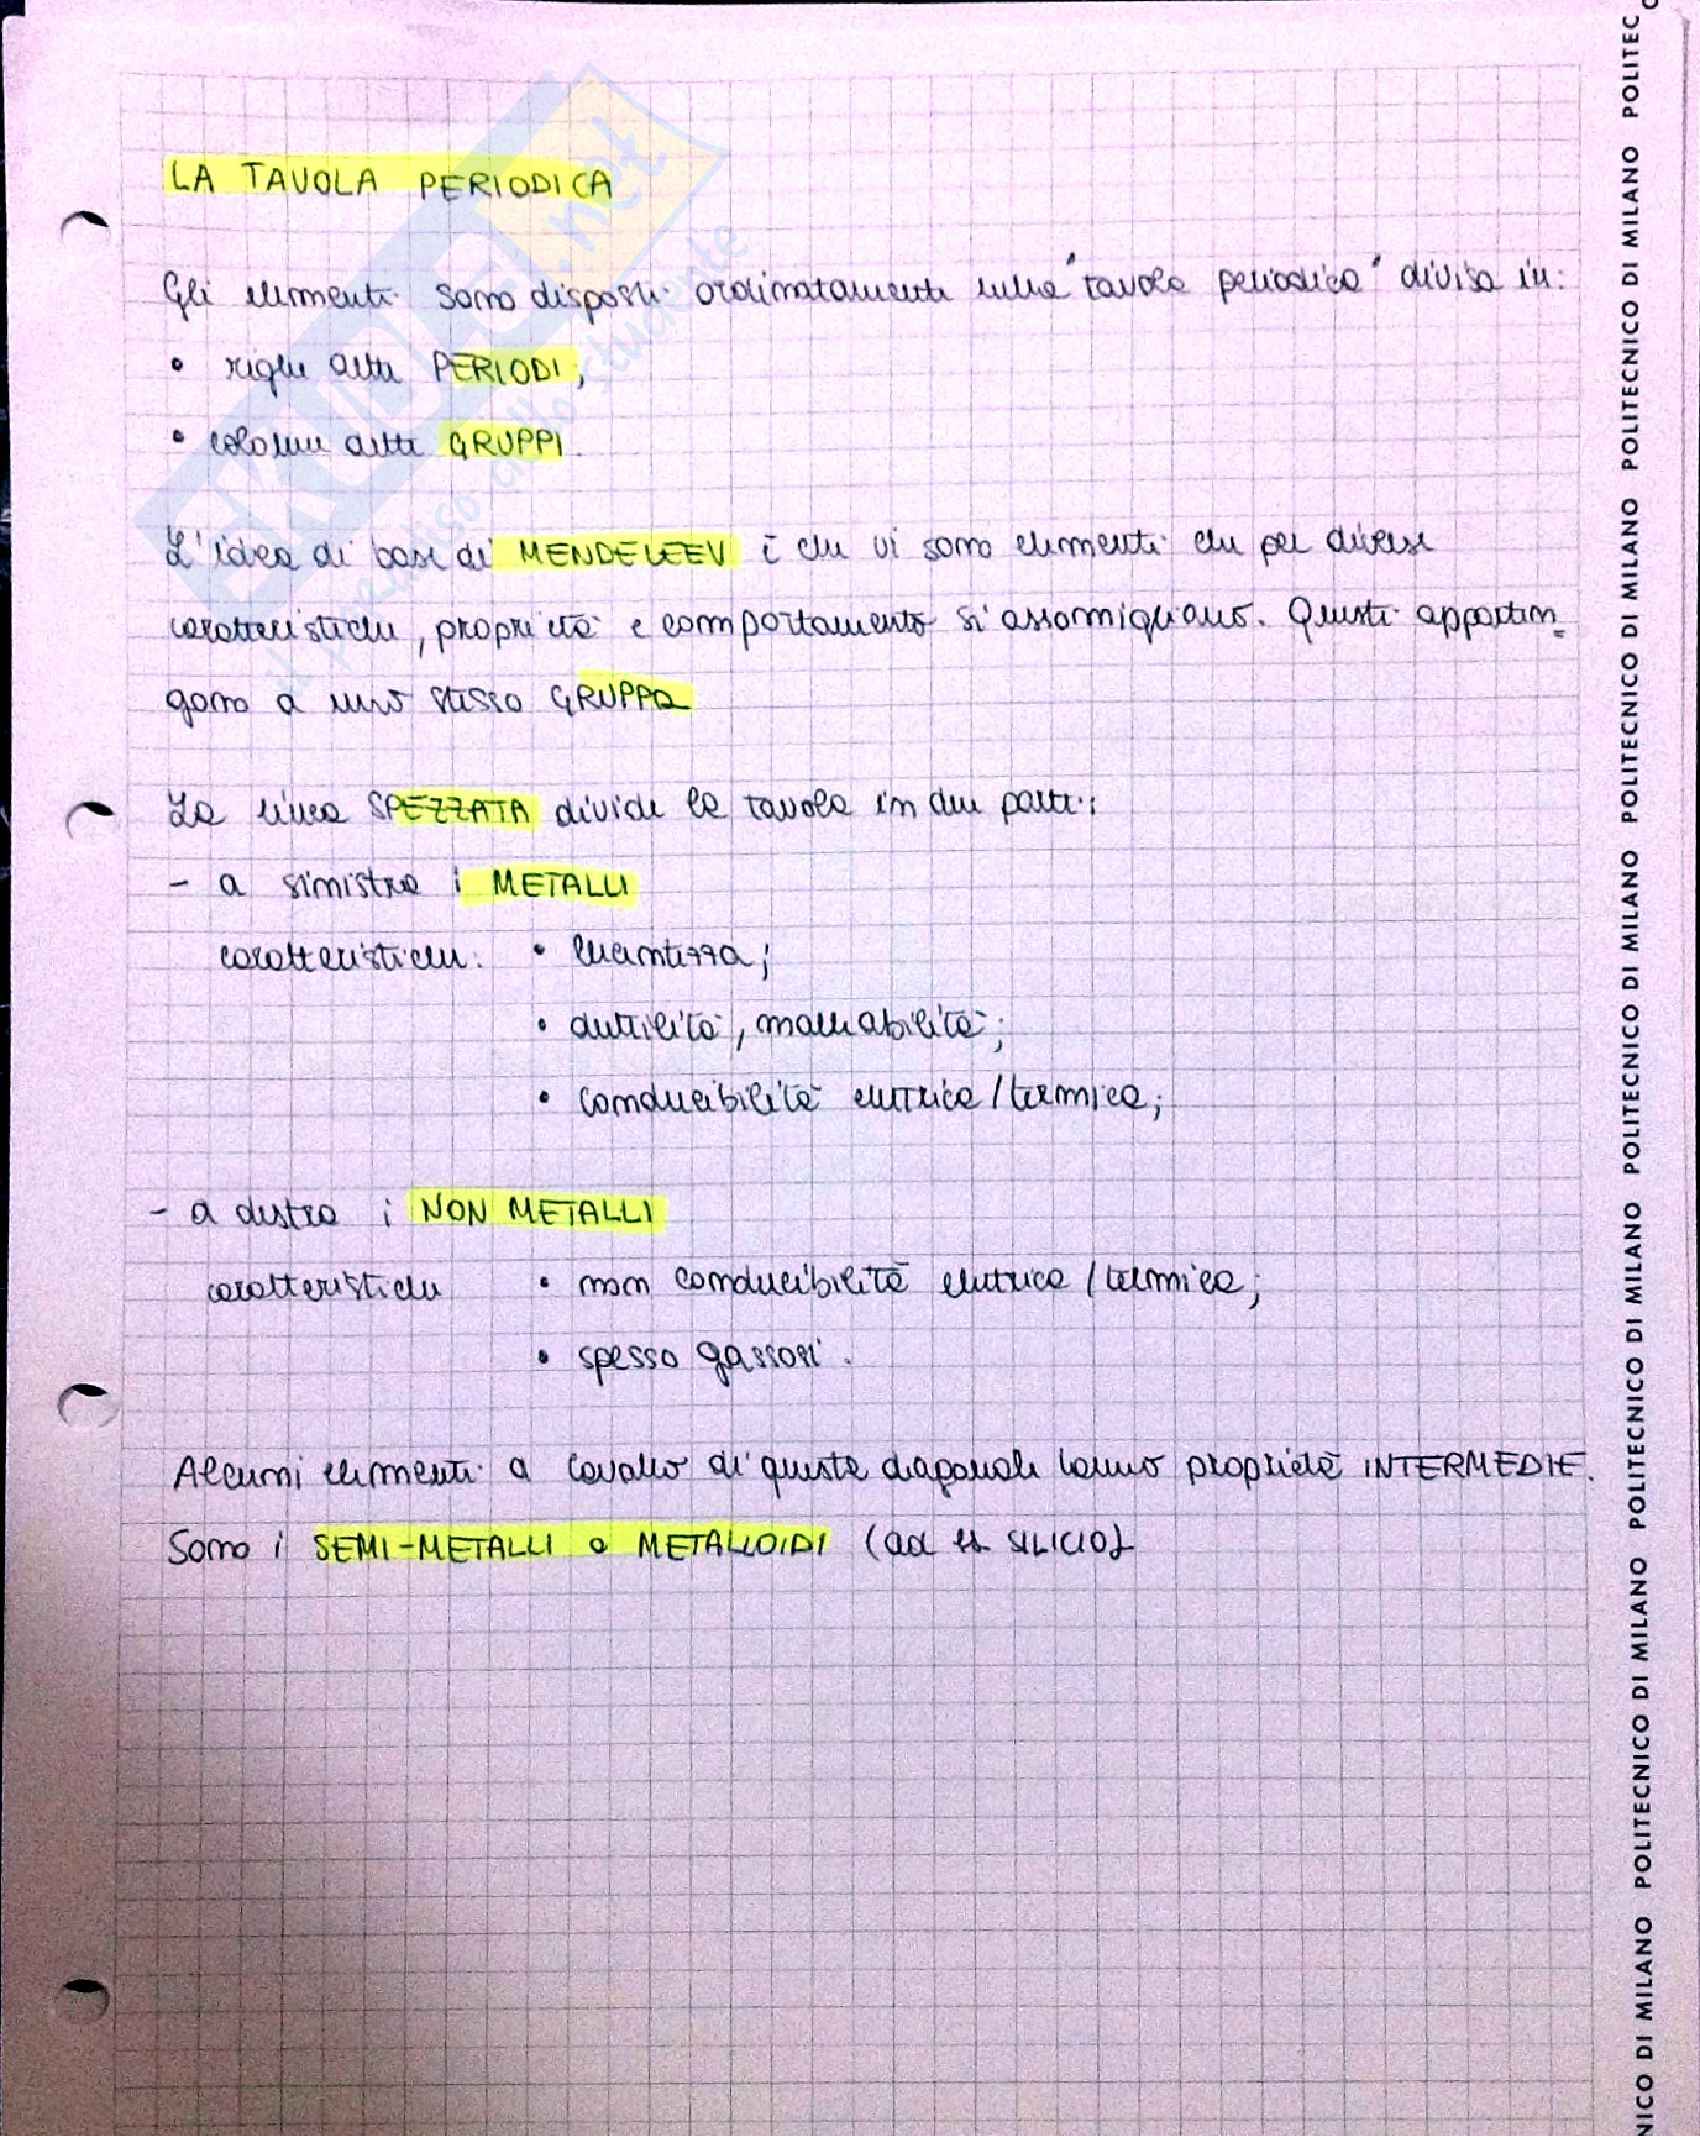 LA TAVOLA PERIODICA
Gli elementi sono disposti ordinatamente sulla "tavola periodica" divisa in:
• righe dette PERIODI;
• colonne dette GRUPPI.
L'idea di base di MENDELEEV è che vi sono elementi che per diverse
caratteristiche, proprietà e comportamento si assomigliano. Questi apparten
gono a uno stesso GRUPPO
La linea SPEZZATA divide la tavola in due parti:
- a sinistra i METALLI
caratteristiche: • lucentezza;
• duttilità, malleabilità;
• conducibilità elettrica/termica;
- a destra i NON METALLI
caratteristiche • non conducibilità elettrica/termica;
• spesso gassosi.
Alcuni elementi a cavallo di questa diagonale hanno proprietà INTERMEDIE.
Sono i SEMI-METALLI o METALLOIDI (ad es SILICIO)
SKUOLA.net
il paradiso dello studente
POLITECNICO DI MILANO POLITECNICO DI MILANO POLITECNICO DI MILANO POLITECNICO DI MILANO POLITECNICO DI MILANO POLITEC